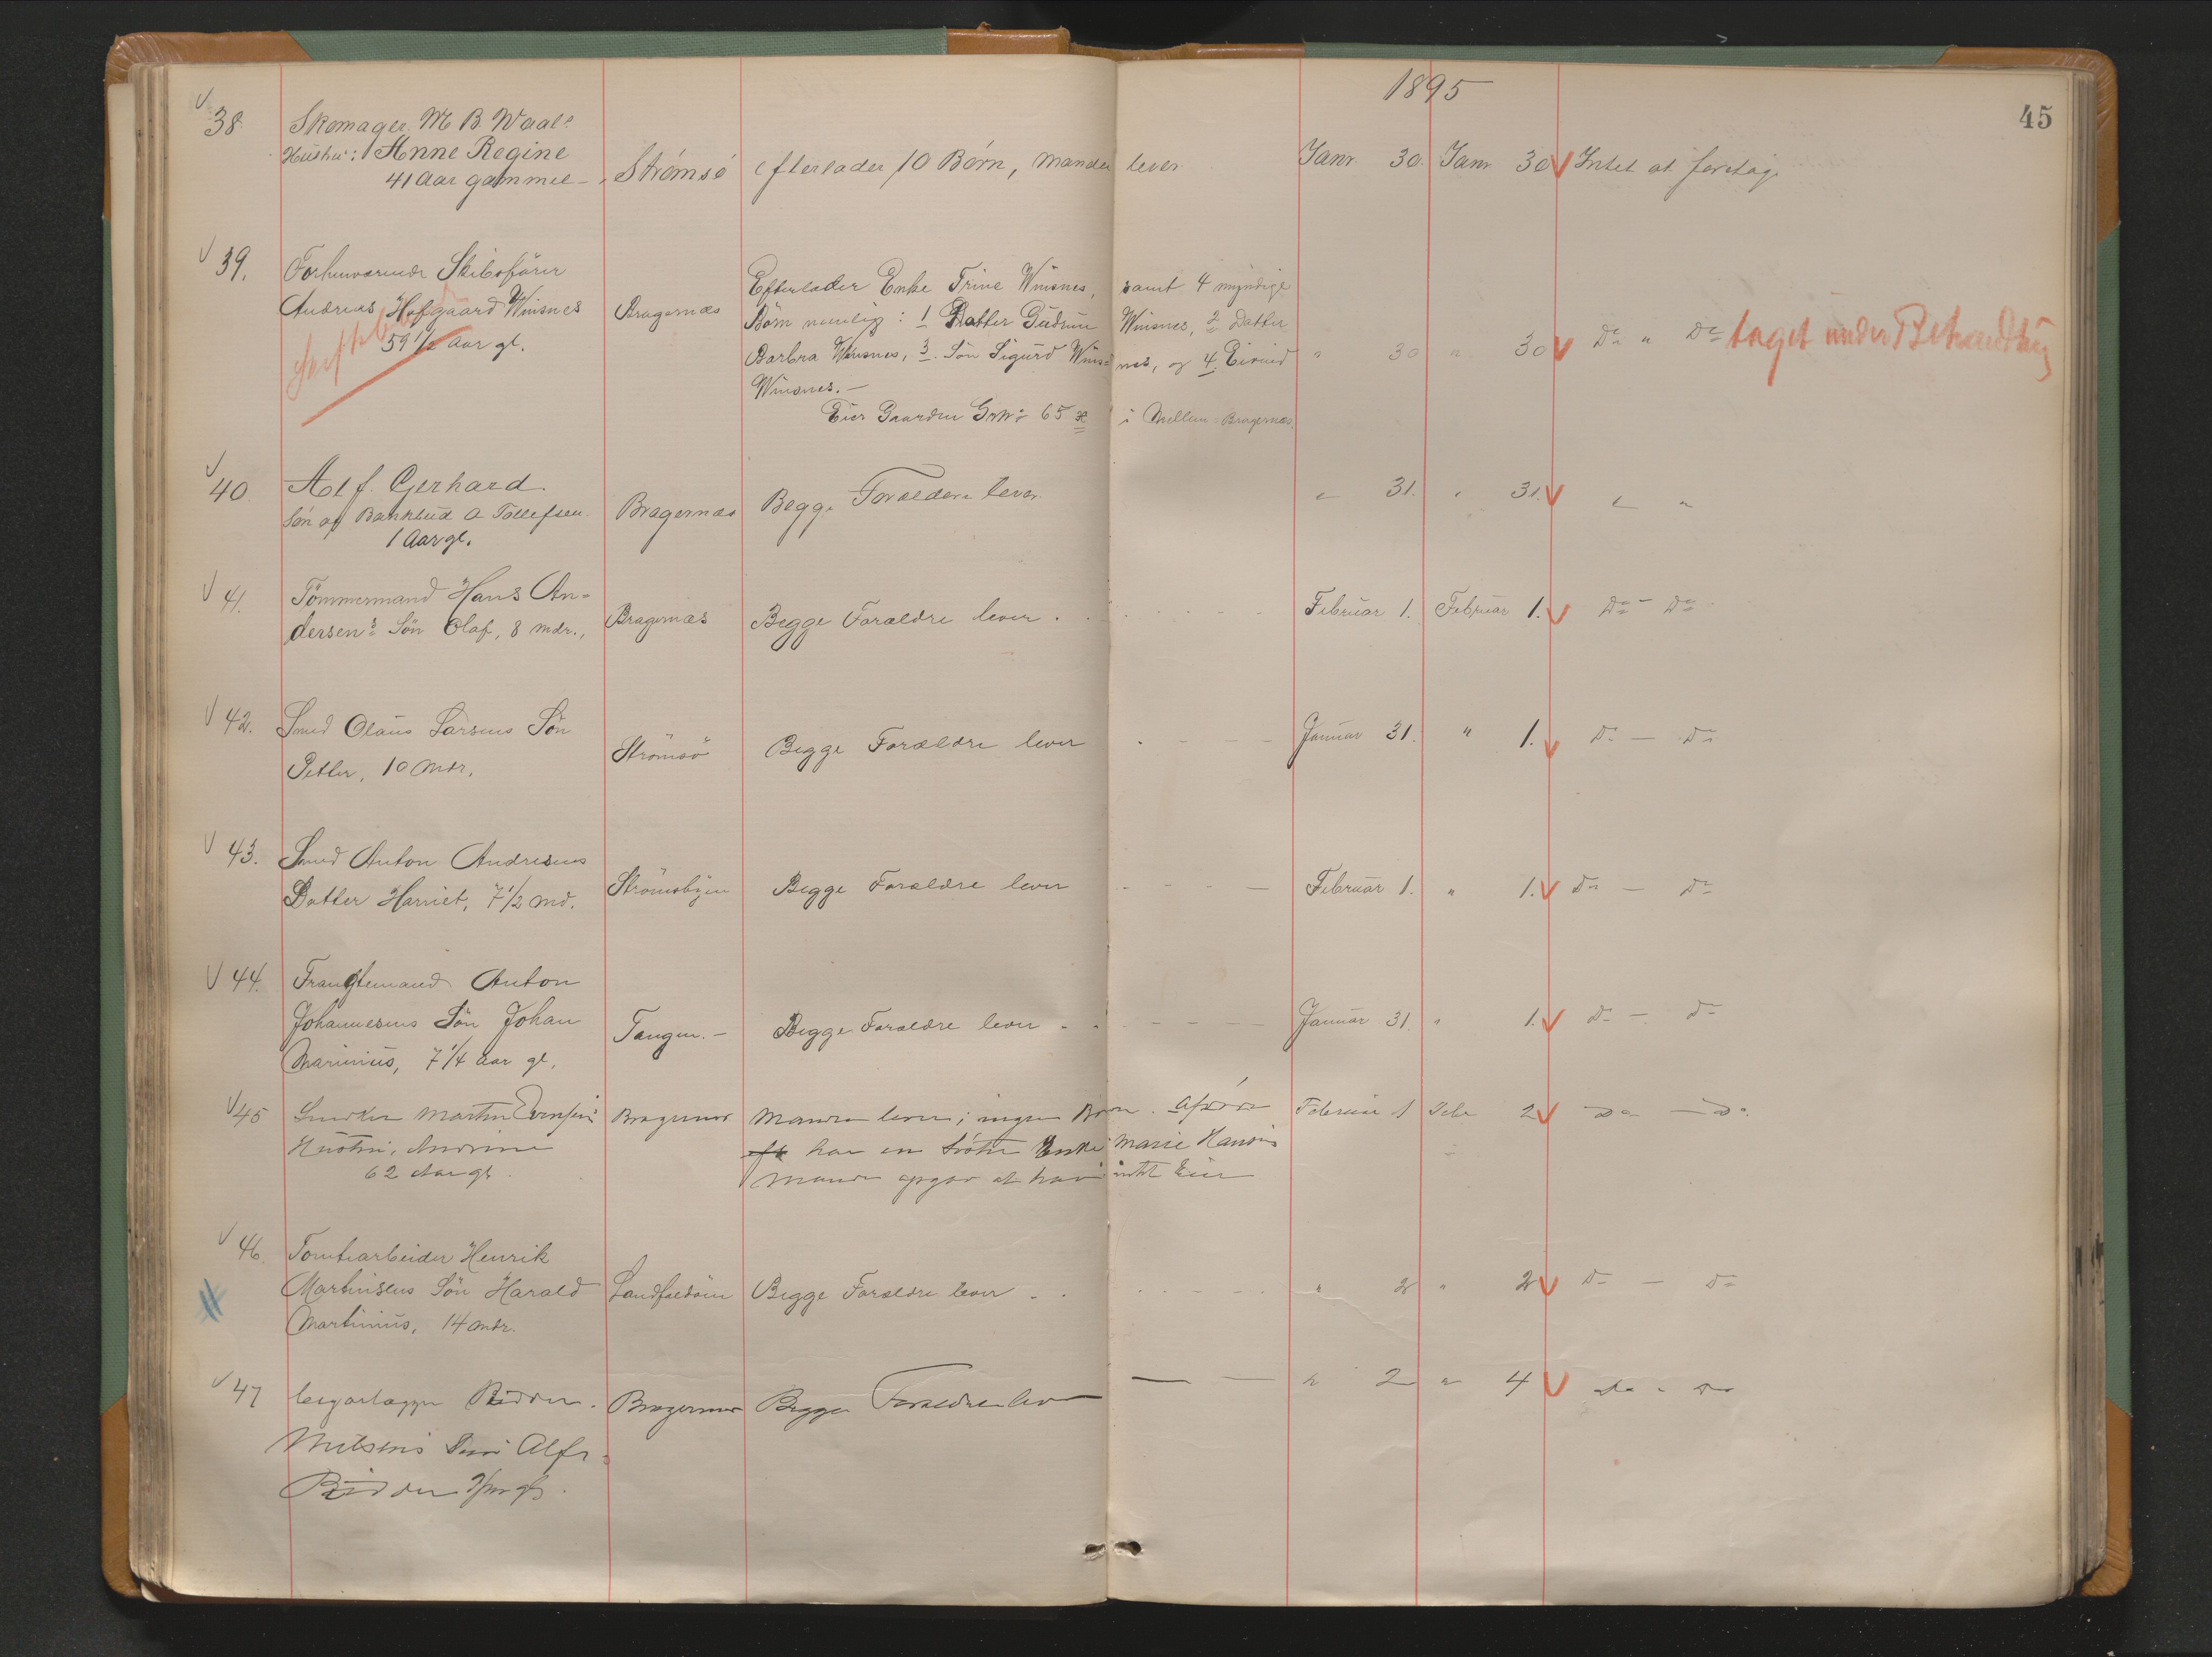 1895
45
38. Skomager M B Waals Strømsø efterlader 10 Børn, Manden lever Janr. 30. Janr. 30 Intet at foretage
Hustru: Anne Regine
41 Aar gammel –
39. Forhenværende Skibsfører
Andreas Hofgaard Winsnes Bragernæs
59 1/2 Aar gl.
Efterlader Enke Trine Winsnes, samt 4 myndige
Børn nemlig: 1 Datter Gudrun Winsnes, 2 Datter
Barbra Winsnes, 3. Søn Sigurd Winsnes, og 4. Eivind " 30 " 30 Do " Do taget under Behandling
Winsnes. –
Eier Gaarden 65 i Mellem-Bragernæs
40 Alf Gerhard Bragernæs Begge Forældre lever. " 31. " 31. " "
Søn af Bankbud A Tollefsen.
1 Aar gl.
41. Tømmermand Hans An-
dersens Søn Olaf, 8 mdr., Bragernæs Begge Forældre lever. Februar 1. Februar 1. Do – Do
42. Smed Olaus Larsens Søn Strømsø Begge Forældre lever Januar 31. " 1. Do – Do
Petter, 10 Mdr.
43. Smed Anton Andresens
Datter Harriet, 7 1/2 Md. Strømsbyen Begge Forældre lever Februar 1. " 1. Do – Do
44. Anton
Johannesens Søn Johan Tangen. – Begge Forældre lever Januar 31. " 1. Do – Do
Marinius, 7 1/4 Aar gl.
45 Snedker Martin Bragernæs Manden lever; ingen Børn. Afdøde Februar 1 Febr 2 Do – Do
Hustru, Andrine har en Søster Enke Marie Hansen
62 Aar gl. Manden opgav at have intet Eie
46. Tomtearbeider Henrik
Martinsens Søn Harald Landfaldøen Begge Forældre lever " 2 " 2 Do – Do
Martinius, 14 Mdr.
47 Bragernæs Begge Forældre lever " 2 " 4 Do " Do
Nilsens Søn Alf